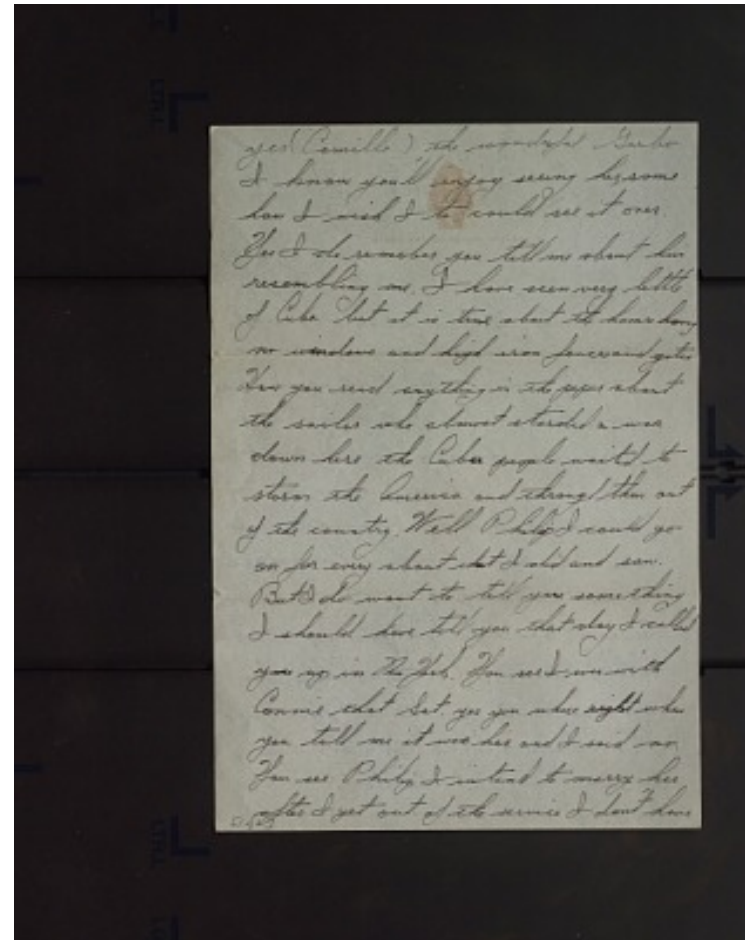 yes (Camille) the wonderful Garbo
I know you'll enjoy seeing her some
how I wish I to could see it over.
Yes I do remember you tell me about her
resembling me. I have seen very little
of Cuba but it is true about the house having
no windows and high iron fences and gates
Have you read anything in the paper about
the sailor who almost started a war
down here the Cuba people waited to
storm the America and them out
of the country. Well Philip I could go
on for every about what I did and saw.
But I do want to tell you something
I should have told you that day I called
you up in New York. You see I was with
Connie that Sat. yes you where right when
you tell me it was her and I said no.
You see Philip I intend to marry her
after I get out of the service I don't have